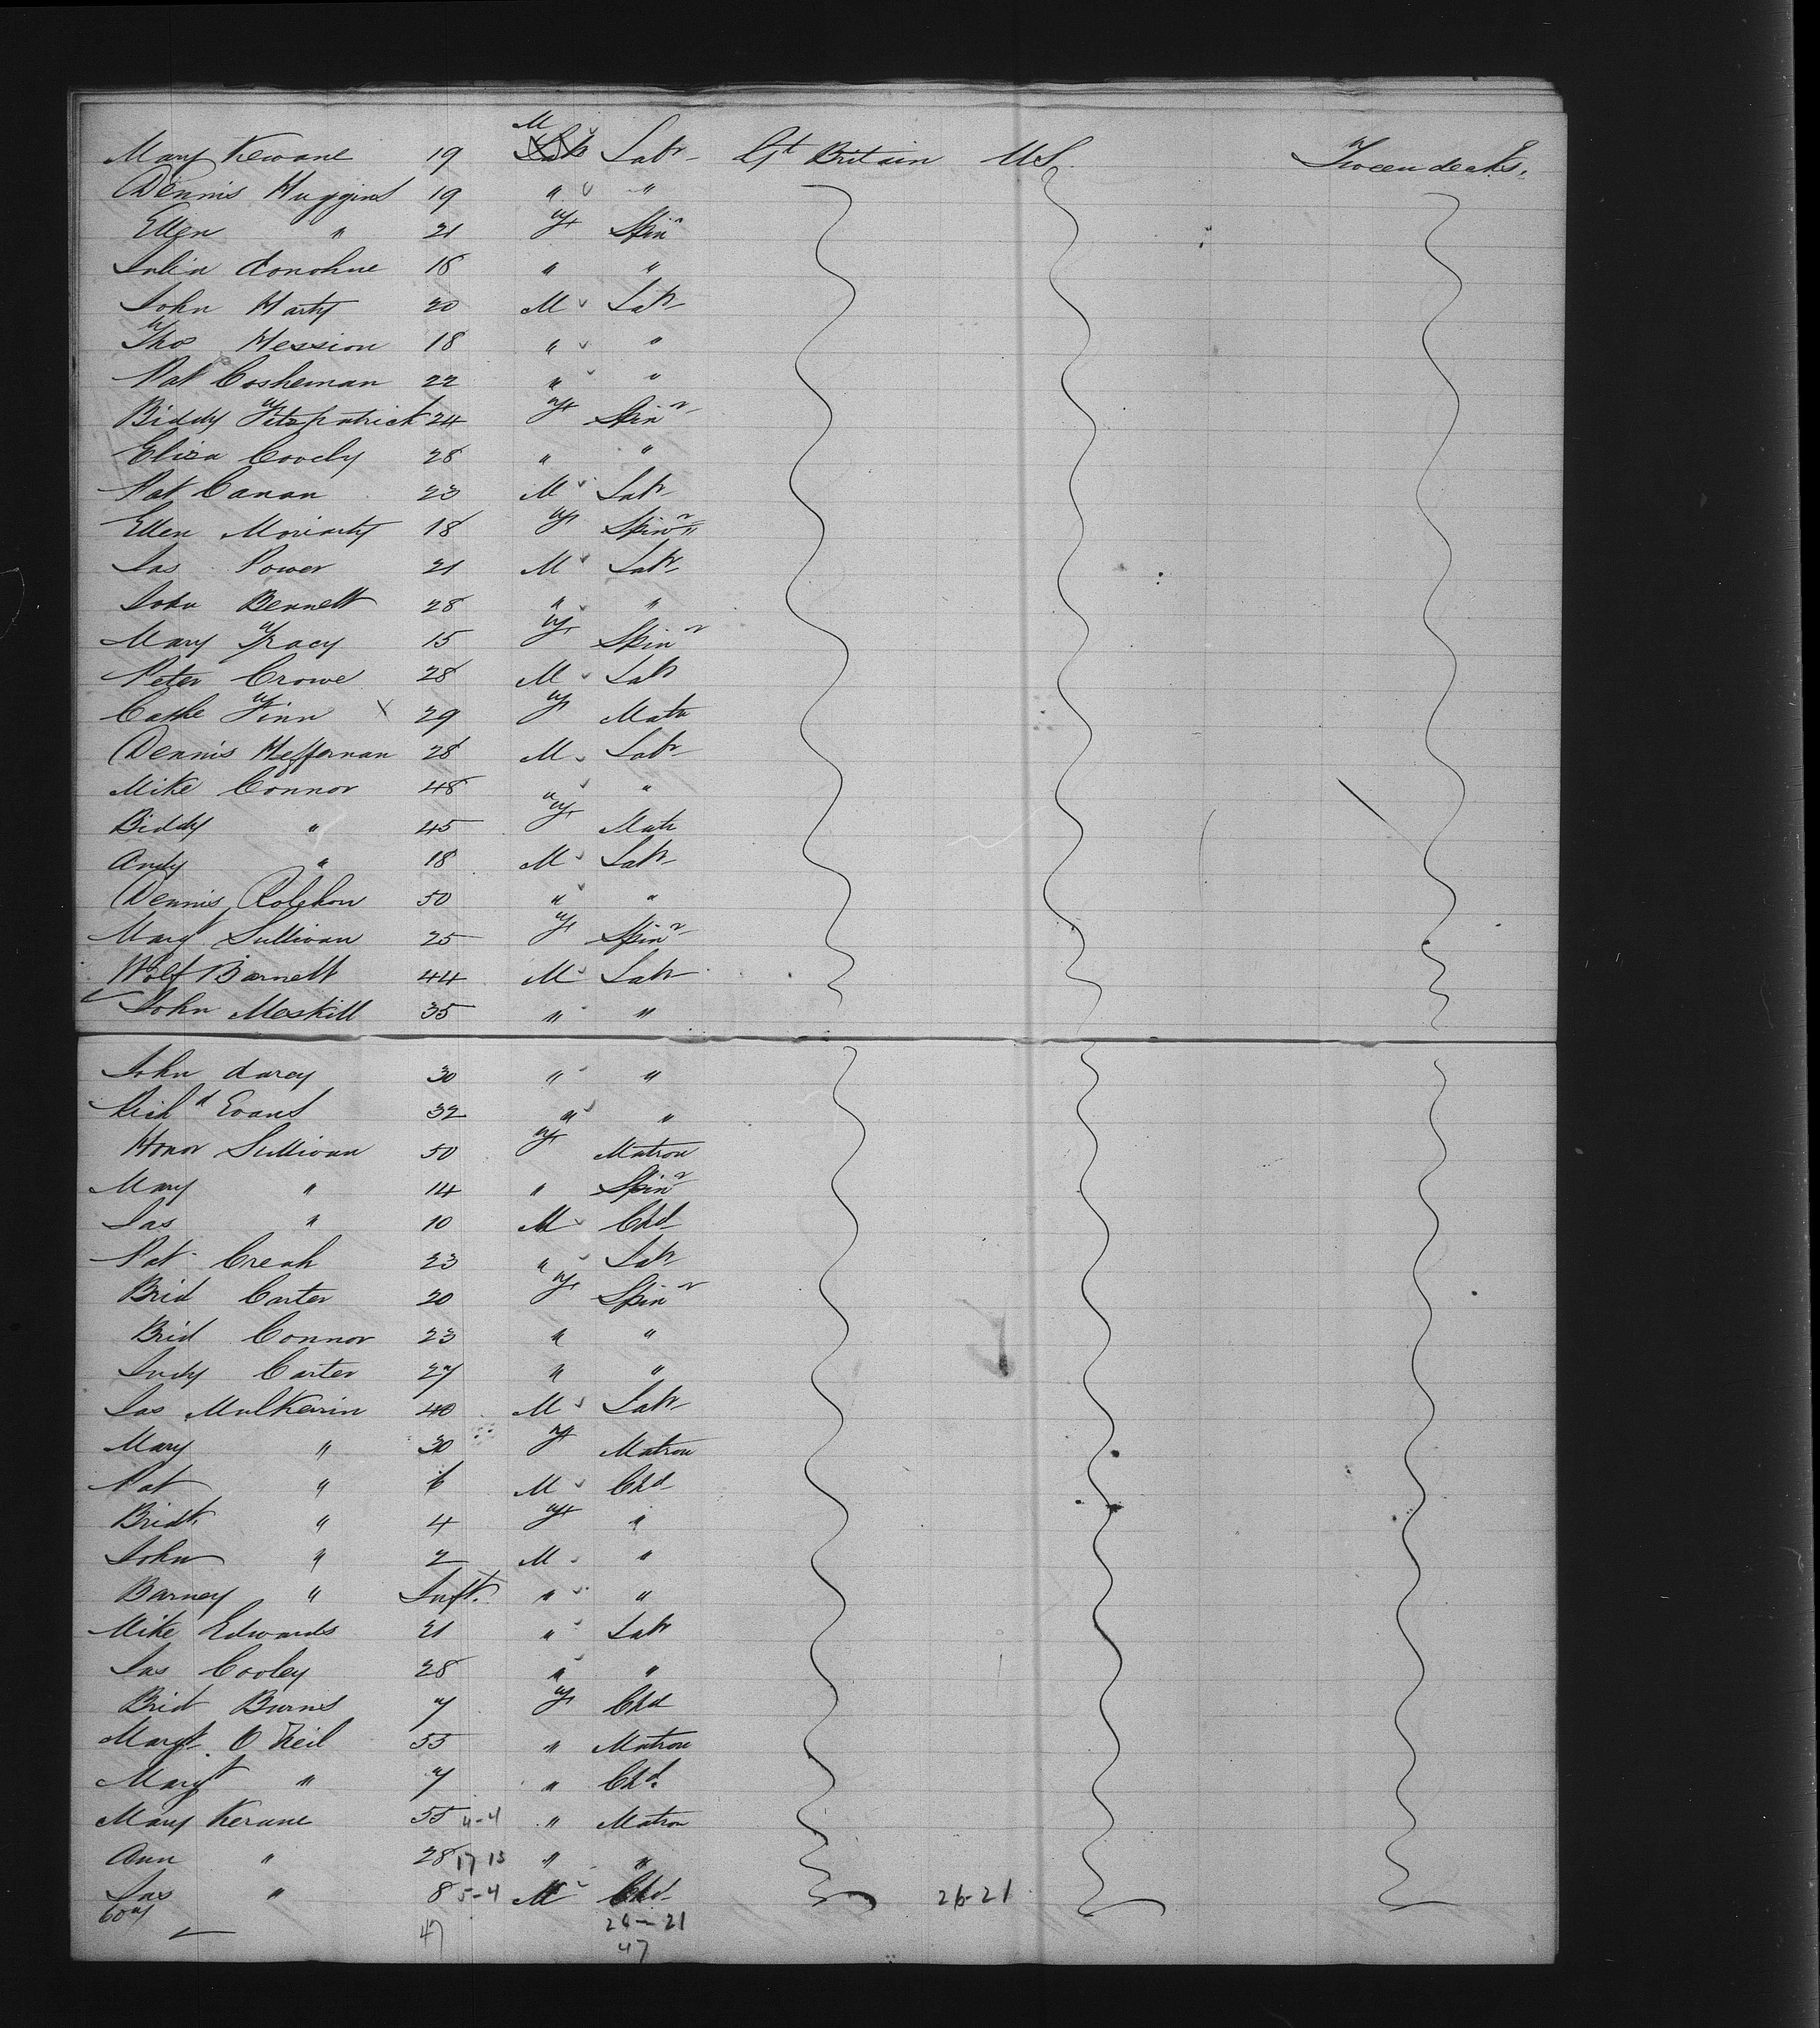 Mary Kewane 19 M Labr Gt Britain U.S. Tween decks.
Dennis Huggins 19 " "
Ellen " 21 F Spinr
Julia Donohue 18 " "
John Harty 20 M Labr
Thos Hession 18 " "
Pat Cosheman 22 " "
Biddy Fitzpatrick 24 F Spinr
Eliza Coody 28 " "
Pat Canan 23 M Labr
Ellen Moriarty 18 F Spinr "
Jas Power 21 M Labr
John Bennett 28 " "
Mary Tracy 15 F Spinr
Peter Crowe 28 M Labr
Cathe Finn X 29 F Matr
Dennis Heffernan 28 M Labr
Mike Connor 48 " "
Biddy " 45 F Matr
Andy " 18 M Labr
Dennis 50 " "
Margt Sullivan 25 F Spinr
Wolf Barnett 44 M Labr
John Meskill 35 " "
John Darcy 30 " "
Richd Evans 32 " "
Honor Sullivan 50 F Matron
Mary " 14 " Spinr
Jas " 10 M Chd
Pat Creah 23 " Labr
Brid Carter 20 F Spinr
Brid Connor 23 " "
Judy Carter 27 " "
Jas Mulkerin 40 M Labr
Mary " 30 F Matron
Pat " 6 M Chd
Bridt. " 4 F "
John " 2 M "
Barney " Inft. " "
Mike Edwards 21 " Labr
Jas Cooley 28 " "
Brid Burns 7 F Chd
Margt O Neil 55 " Matron
Margt " 7 " Chd.
Mary Kerane 55 4-4 " Matron
Ann " 28 17 13 " "
Jas " 8 5-4 M Chd 26-21
47 26-21
47